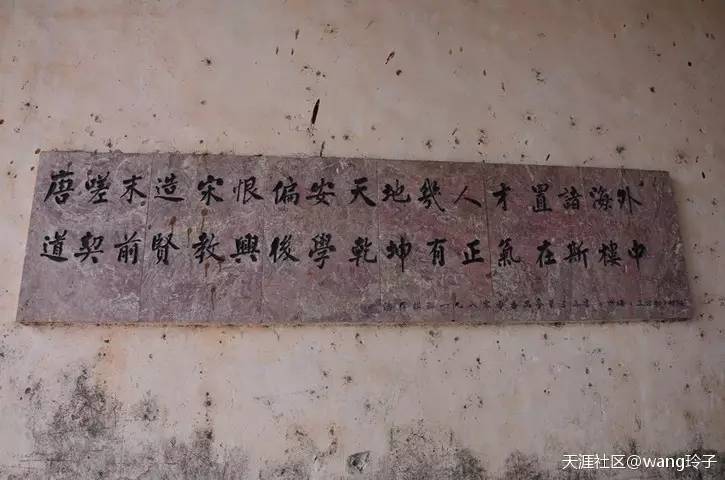 唐嗟末造宋恨偏安天地幾人才置諸海外
道契前賢教興後學乾坤有正氣在斯樓中
天涯社区@wang玲子